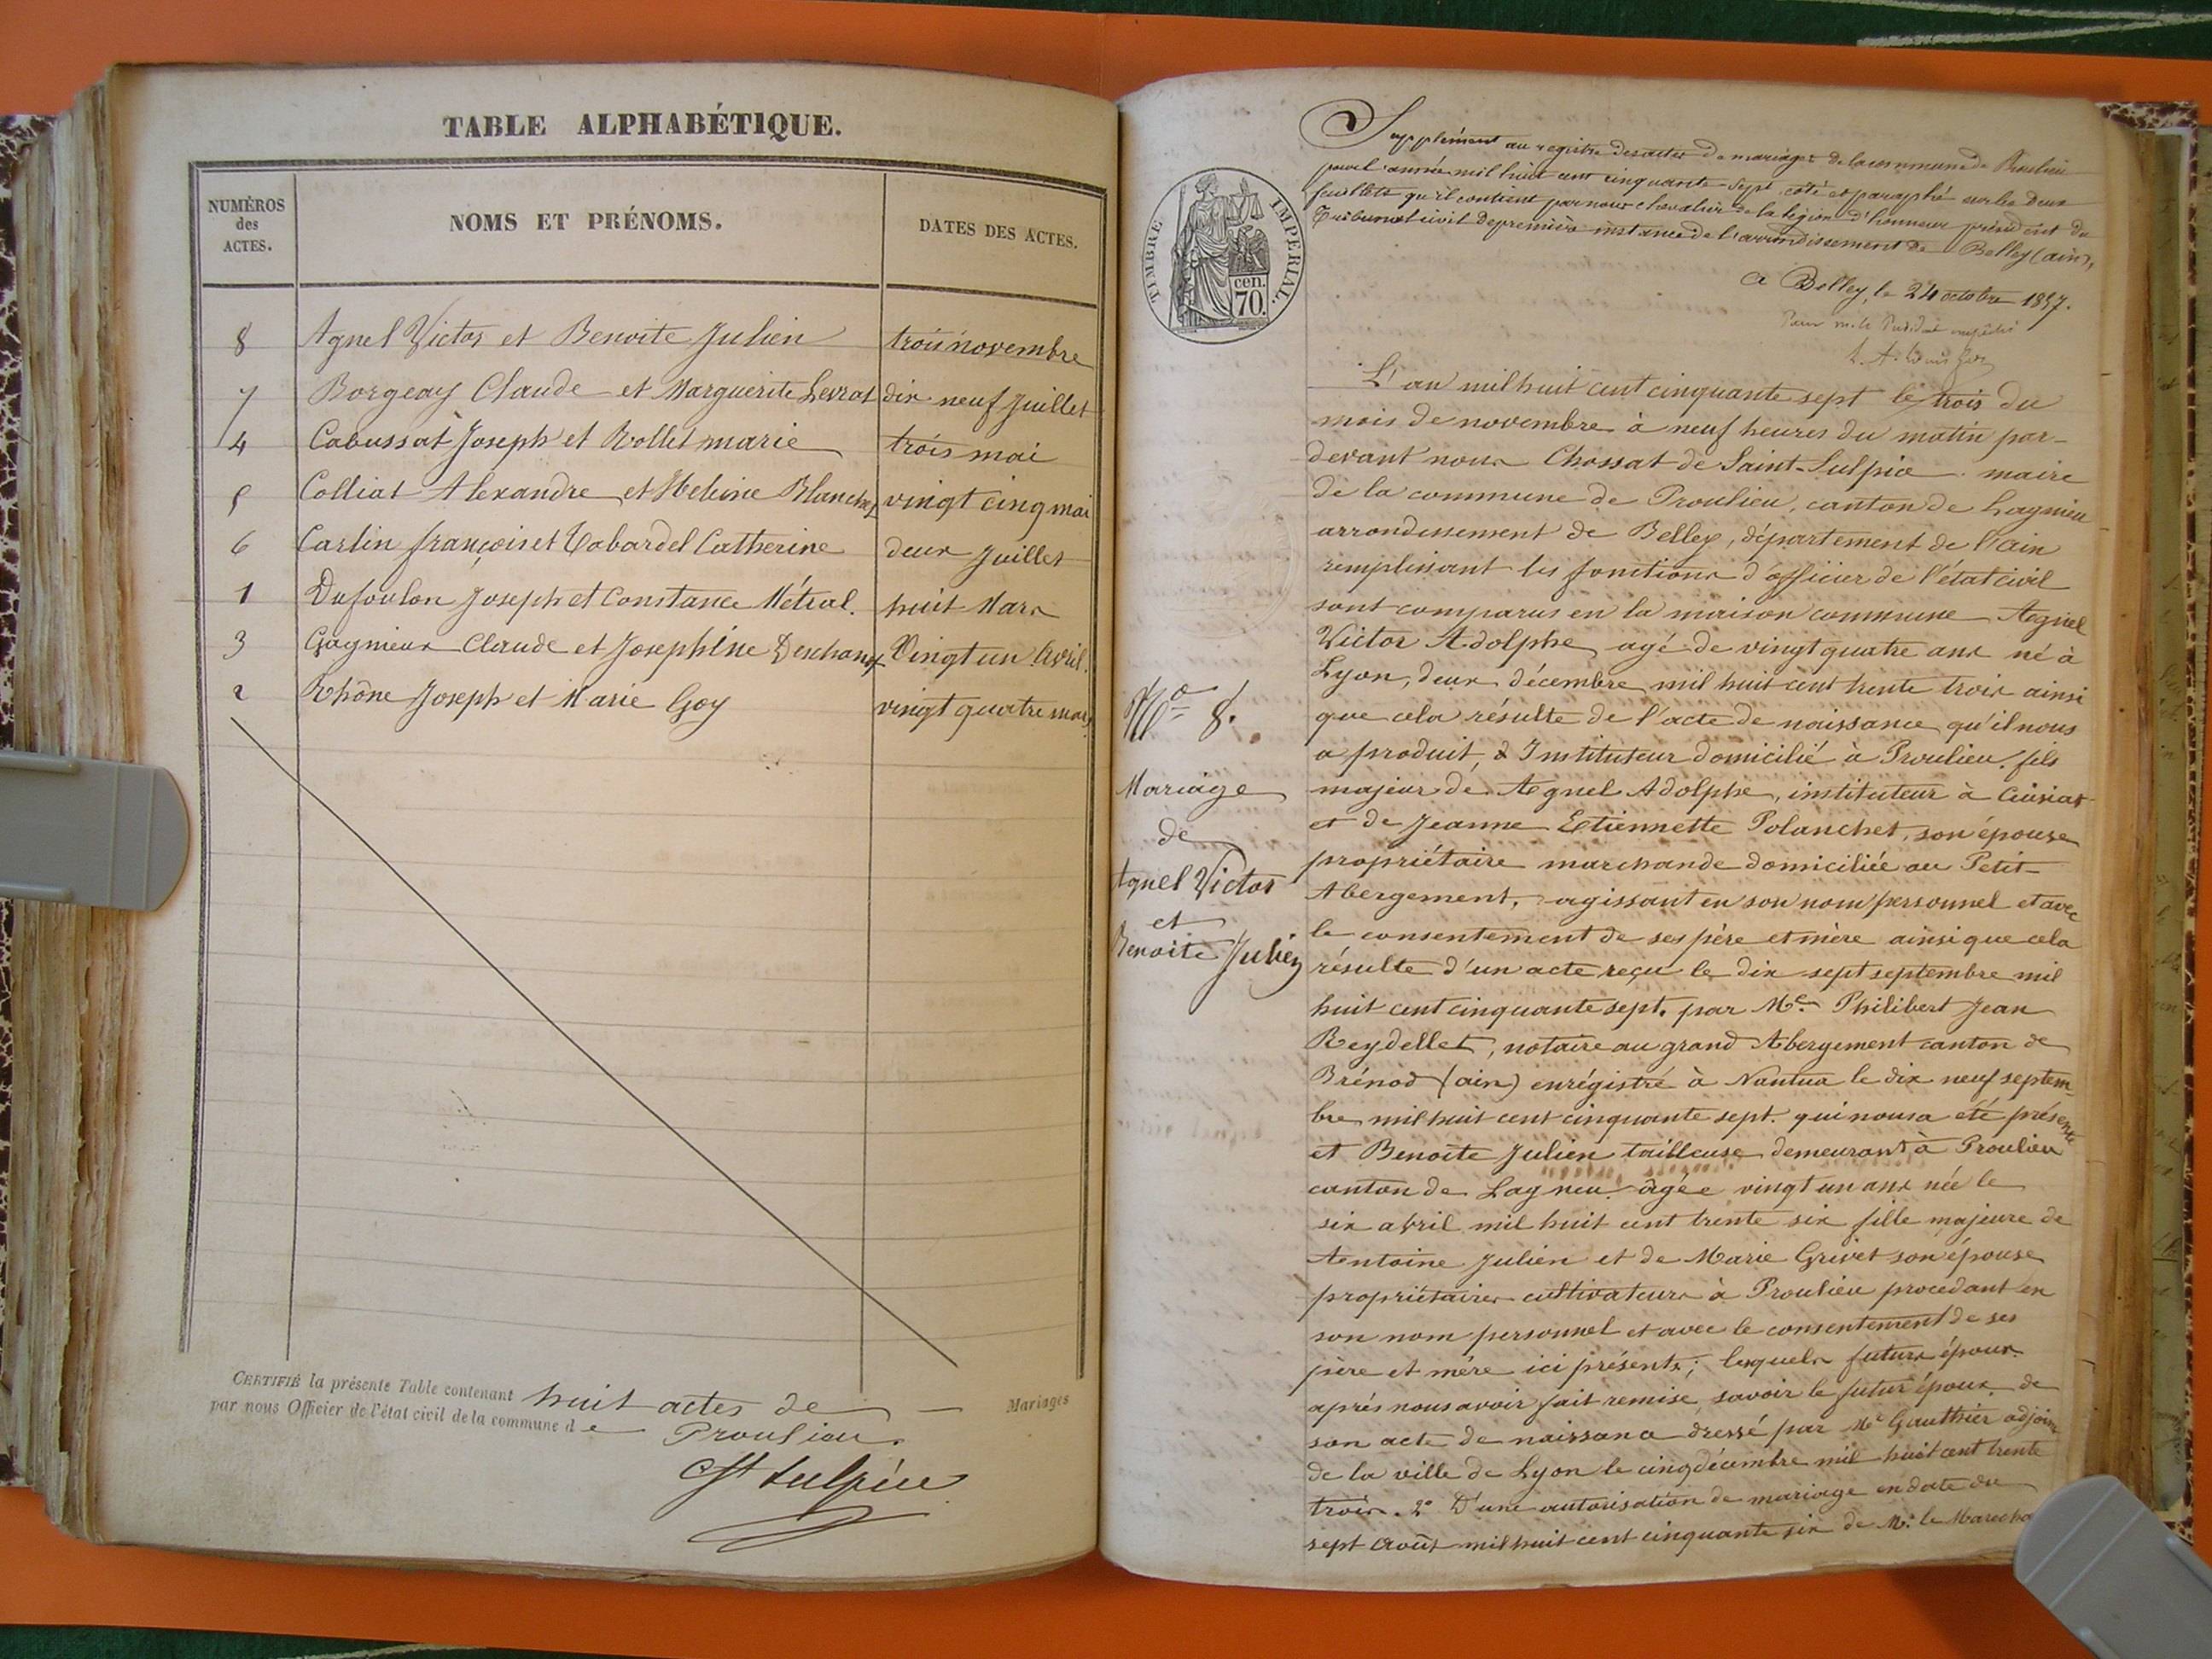 TABLE ALPHABÉTIQUE.
NUMÉROS des ACTES. NOMS ET PRÉNOMS. DATES DES ACTES.
8 Agnel Victor et Benoite Julien trois novembre
7 Borgeay Claude et Marguerite Levrat dix neuf Juillet
4 Cabussat Joseph et Rollet marie trois mai
5 Colliat Alexandre et Blanche vingt cinq mai
6 Carlin françois et Tabardel Catherine deux Juillet
1 Dufoulon Joseph et Constance Métral. huit Mars
3 Gagnieur Claude et Joséphine Vingt un Avril.
2 Rhône Joseph et Marie Goy vingt quatre mars
CERTIFIÉ la présente Table contenant huit actes de Mariages
par nous Officier de l'état civil de la commune de Proulieu.
St Sulpice
TIMBRE IMPÉRIAL.
70 cen.
Supplément au registre des actes de mariages de la commune de Proulieu
pour l'année mil huit cent cinquante-sept, coté et paraphé sur les deux
feuillets qu'il contient par nous chevalier de la légion d'honneur président du
Tribunal civil de première instance de l'arrondissement de Belley (ain),
a Belley, le 24 octobre 1857.
Pour m. le Président empêché
L'an mil huit cent cinquante sept le trois du
mois de novembre à neuf heures du matin par-
devant nous Chossat de Saint-Sulpice maire
de la commune de Proulieu, canton de Lagnieu
arrondissement de Belley, département de l'ain
remplissant les fonctions d'officier de l'état civil
sont comparus en la maison commune Agnel
Victor Adolphe, agé de vingt quatre ans né à
Lyon, deux décembre mil huit cent trente trois ainsi
que cela résulte de l'acte de naissance qu'il nous
a produit, Instituteur domicilié à Proulieu, fils
majeur de Agnel Adolphe, instituteur à
et de Jeanne Etiennette Polanchet, son épouse
propriétaire marchande domiciliée au Petit-
Abergement, agissant en son nom personnel et avec
le consentement de ses père et mère ainsi que cela
résulte d'un acte reçu le dix sept septembre mil
huit cent cinquante sept, par Me. Philibert Jean
Reydellet, notaire au grand Abergement canton de
Brénod (ain) enrégistré à Nantua le dix neuf septem-
bre mil huit cent cinquante sept. qui nous a été présenté
et Benoite Julien tailleuse demeurant à Proulieu
canton de Lagneu âgée vingt un ans née le
six avril mil huit cent trente six fille majeure de
Antoine Julien et de Marie Grivet son épouse
propriétaires cultivateurs à Proulieu procédant en
son nom personnel et avec le consentement de ses
père et mère ici présents; lesquels futurs époux
après nous avoir fait remise, savoir le futur époux, de
son acte de naissance dressé par Mr Gauthier adjoint
de la ville de Lyon le cinq décembre mil huit cent trente
trois. 2° D'une autorisation de mariage en date du
sept août mil huit cent cinquante six de Mr. le
No 8.
Mariage
de
Agnel Victor
et
Benoite Julien